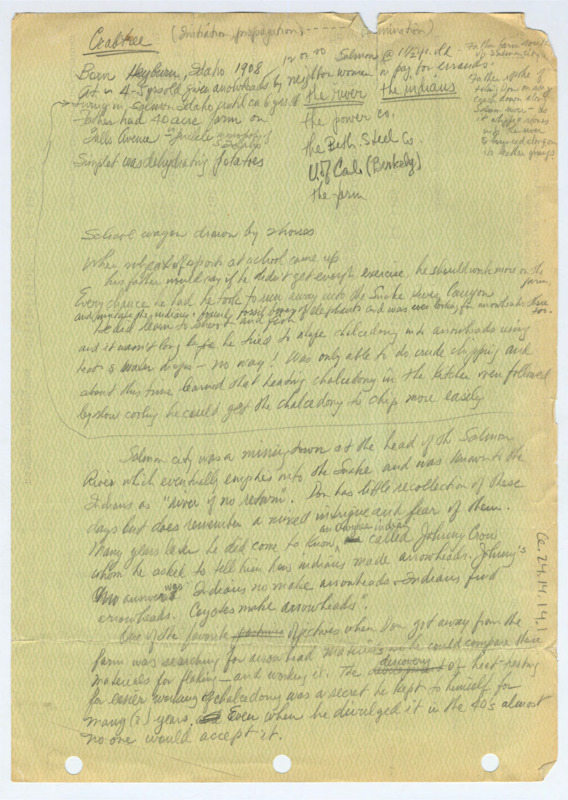 Crabtree
(Initiation, propagation) ---- termination)
Born Heyburn, Idaho 1908
At ~ 4-5 yrs old given arrowheads by neighbor woman in pay for errands.
12 or 20 Salmon @ 1 1/2 yr. old -
living in Salmon, Idaho until
Father had 40 acre farm on
Falls Avenue
Simplot was dehydrating potatoes
the river the indians
the power co.
the Beth. Steel Co.
U. of Cal. (Berkeley)
the farm
School wagon drawn by 2 horses
When subject of sports at school came up
his father would say if he didn't get enough exercise, he should work more on the farm.
Every chance he had he took to run away into the Snake River Canyon
and
He did learn to shoot and fish
and it wasn't long before he tried to shape chalcedony into arrowheads using
heat & water drops - no way! Was only able to do crude chipping and
about this time learned that heating chalcedony in the kitchen oven followed
by slow cooling he could get the chalcedony to chip more easily
Salmon city was a mining town at the head of the Salmon
River which eventually empties into the Snake and was known to the
Indians as "river of no return". Don has little recollection of these
days but does remember a mixed intrigue and fear of them.
Many years later he did come to know an indian called Johnny Crow
whom he asked to tell him how indians made arrowheads. Johnny's
answer was "Indians no make arrowheads - Indians find
arrowheads. Coyotes make arrowheads".
One of the favorite objectives when Don got away from the
farm was searching for arrowhead materials so he could compare these
materials for flaking - and working it. The discovery of heat-treating
for easier working of chalcedony was a secret he kept to himself for
many (?) years. Even when he divulged it in the 40's almost
no one would accept it.
Ce.74.14.14.1